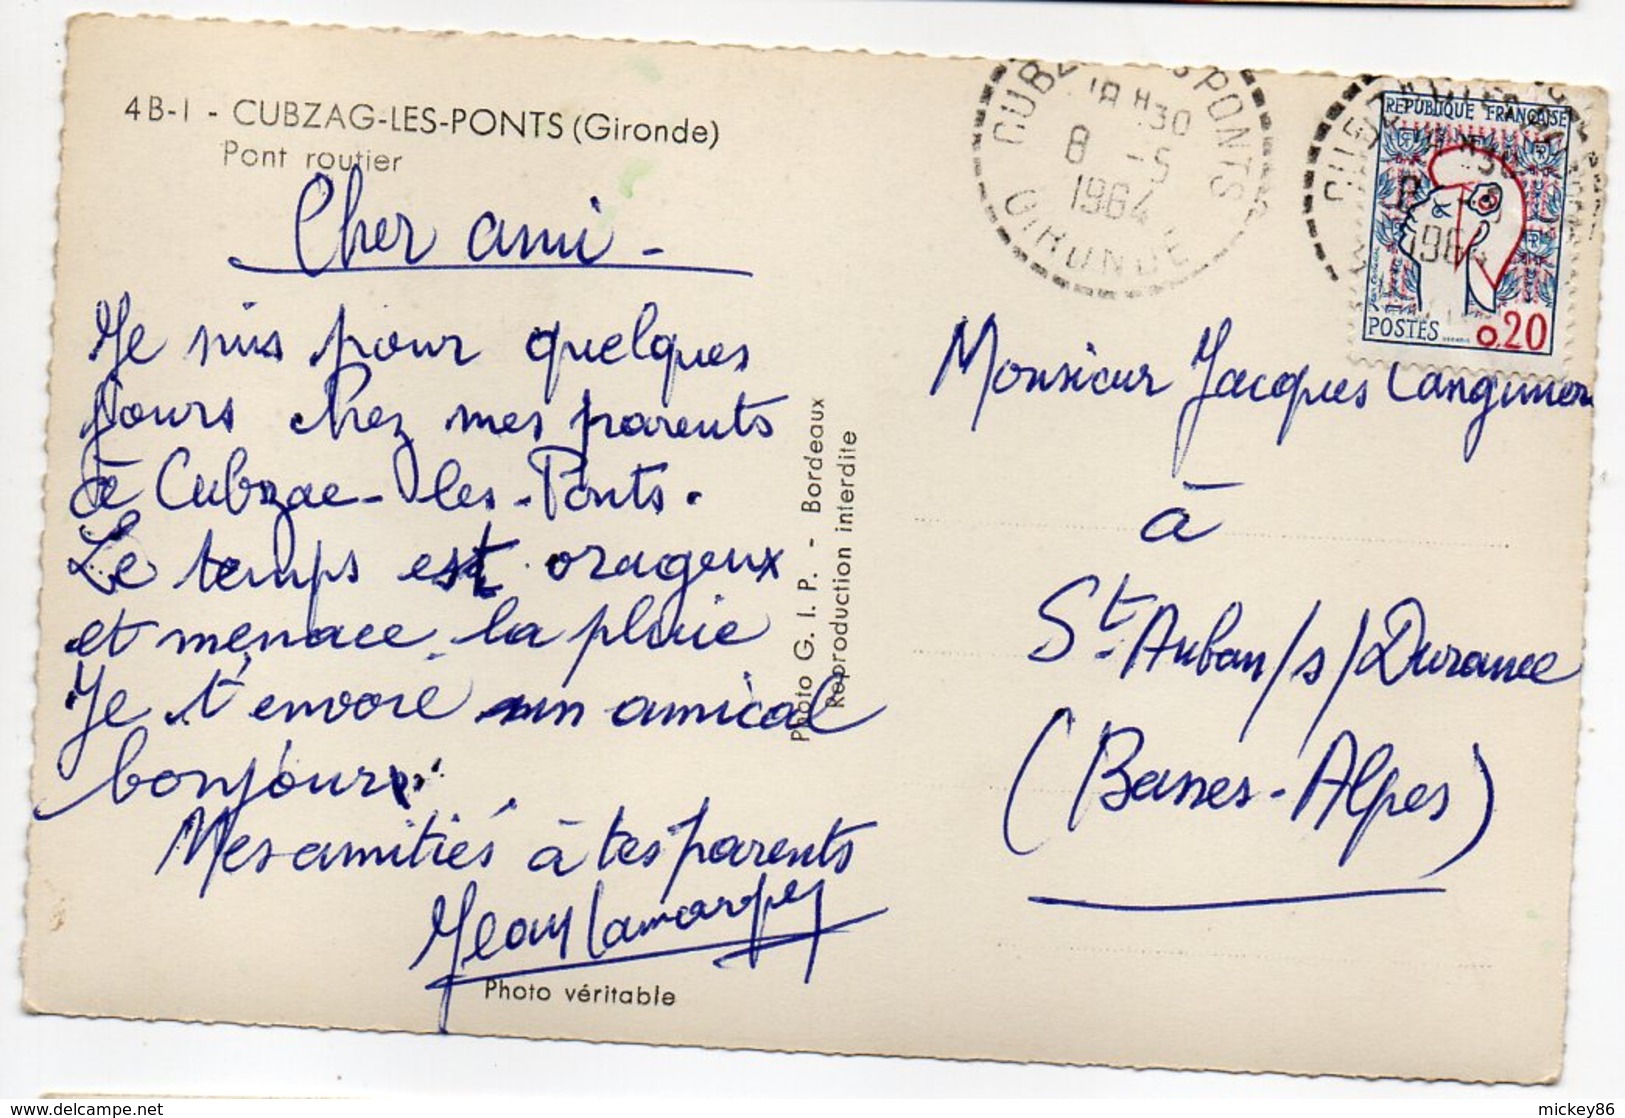 4B-1 - CUBZAG-LES-PONTS (Gironde)
Pont routier
Cher ami -
Je suis pour quelques
jours chez mes parents
à Cubzac-les-Ponts.
Le temps est orageux
et menace la pluie
Je t'envoie un amical
bonjour.
Mes amitiés à tes parents
Jean
Photo véritable
Photo G. I. P. - Bordeaux
Reproduction interdite
18 H30
8 - 5
1964
GIRONDE
REPUBLIQUE FRANÇAISE
1964
POSTES 0,20
Monsieur Jacques
à
St-Auban/s/Durance
(Basses-Alpes)
mickey86